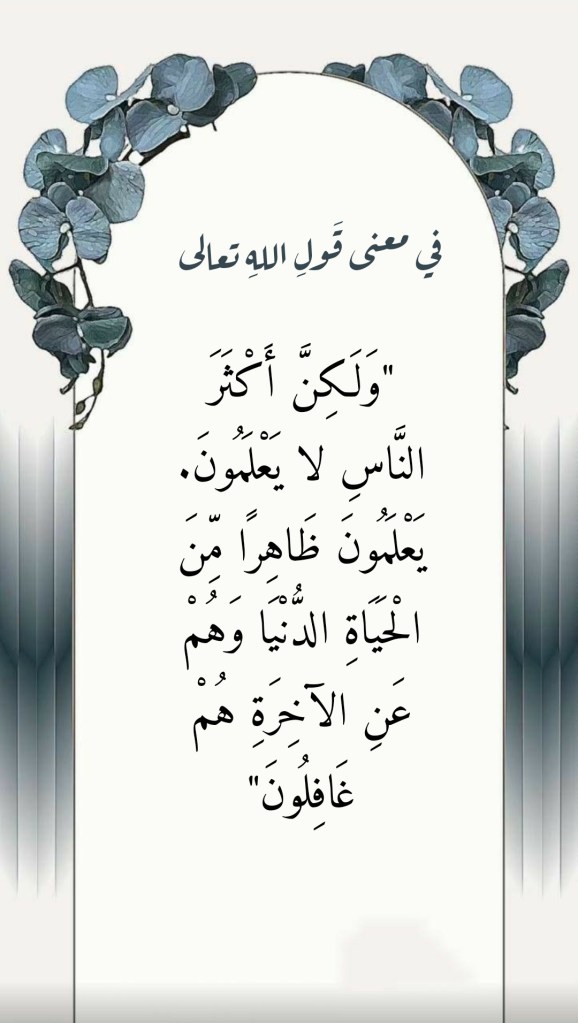 في معنى قَولِ اللهِ تعالى
"وَلَكِنَّ أَكْثَرَ
النَّاسِ لا يَعْلَمُونَ.
يَعْلَمُونَ ظَاهِرًا مِّنَ
الْحَيَاةِ الدُّنْيَا وَهُمْ
عَنِ الآخِرَةِ هُمْ
غَافِلُونَ"